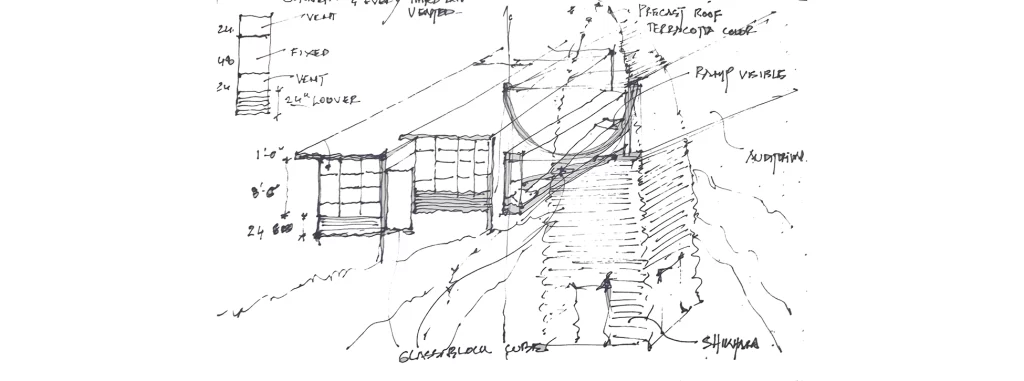 & EVERY THIRD BAY
VENTED
VENT
24
FIXED
48
VENT
24
24" LOUVER
PRECAST ROOF
TERRACOTTA COLOR
RAMP VISIBLE
1'-0"
8'-0"
24
AUDITORIUM
GLASS BLOCK CUBE
SHIKHARA